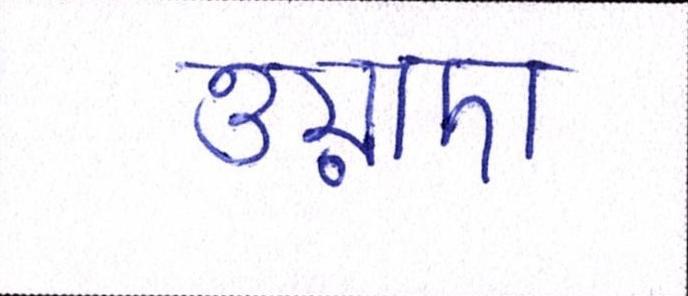 ওয়াদা